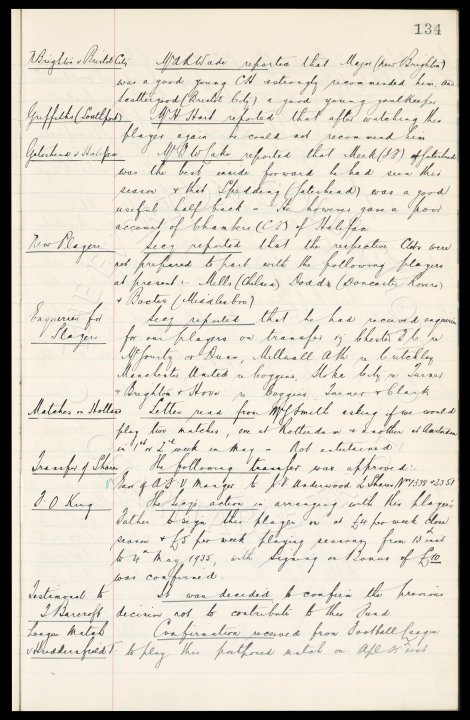 134
N Brighton v Bristol City Mr A K Wade reported that Major (New Brighton)
was a good young C.H. & strongly recommended him. and
Scattergood (Bristol City) a good young goalkeeper
Griffiths (Southport) Mr H Hart reported that after watching this
player again he could not recommend him
Gateshead v Halifax Mr G W Lake reported that Meek (I.F) of Gateshead
was the best inside forward he had seen this
season & that Spedding (Gateshead) was a good
useful half back – He however gave a poor
account of Chambers (C.F) of Halifax
New Players Secy reported that the respective Clubs were
not prepared to part with the following players
at present:- Mills (Chelsea) Dodds (Doncaster Rovers)
& (Middlesbro)
Enquiries for Secy reported that he had received enquiries
Players for our players on transfer viz Chester F.C. re
or Dunn, Millwall Ath re Critchley
Manchester United re Coggins, Stoke City re Turner
& Brighton & Hove re Coggins, Turner & Clark
Matches in Holland Letter read from Mr Smith asking if we would
play two matches, one at Rotterdam & another at Amsterdam
in 1st or 2nd week in May – Not entertained
Transfer of Shares The following transfer was approved:-
Exors of A.S.V Manger to Underwood 2 Shares Nos 1338 & 2351
F. O King The Secy's action in arranging with this player's
Father to sign this player on at £4 per week close
season & £5 per week playing season, from 13 inst
to 4th May 1935, with Signing on Bonus of £10
was confirmed.
Testimonial to It was decided to confirm the previous
Barcroft decision not to contribute to this Fund.
League Match Confirmation received from Football League
v Huddersfield T to play this postponed match on inst